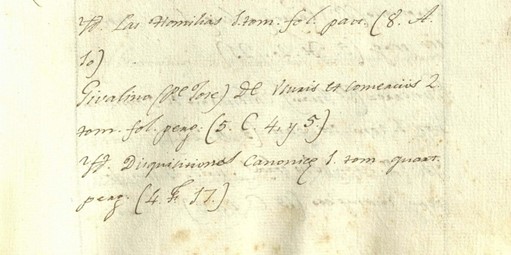 Yff. Las Homilias 1. tom. fol. parv. (8. A.
10)
Givalina (Pe. Jose) De Usuris et Comerciis 2.
tom. fol. perg. (5. C. 4. y 5)
Yff. Disquisitiones Canonicę 1. tom. quart.
perg. (4. F. 17.)